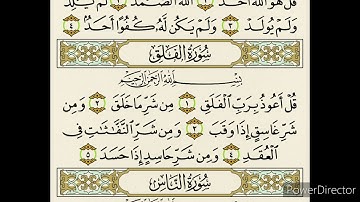 قُلْ هُوَ ٱللَّهُ أَحَدٌ ١ ٱللَّهُ ٱلصَّمَدُ ٢ لَمْ يَلِدْ
وَلَمْ يُولَدْ ٣ وَلَمْ يَكُن لَّهُۥ كُفُوًا أَحَدٌۢ ٤
سُورَةُ الْفَلَقِ
بِسْمِ ٱللَّهِ ٱلرَّحْمَٰنِ ٱلرَّحِيمِ
قُلْ أَعُوذُ بِرَبِّ ٱلْفَلَقِ ١ مِن شَرِّ مَا خَلَقَ ٢ وَمِن
شَرِّ غَاسِقٍ إِذَا وَقَبَ ٣ وَمِن شَرِّ ٱلنَّفَّٰثَٰتِ فِى
ٱلْعُقَدِ ٤ وَمِن شَرِّ حَاسِدٍ إِذَا حَسَدَ ٥
سُورَةُ النَّاسِ
PowerDirector